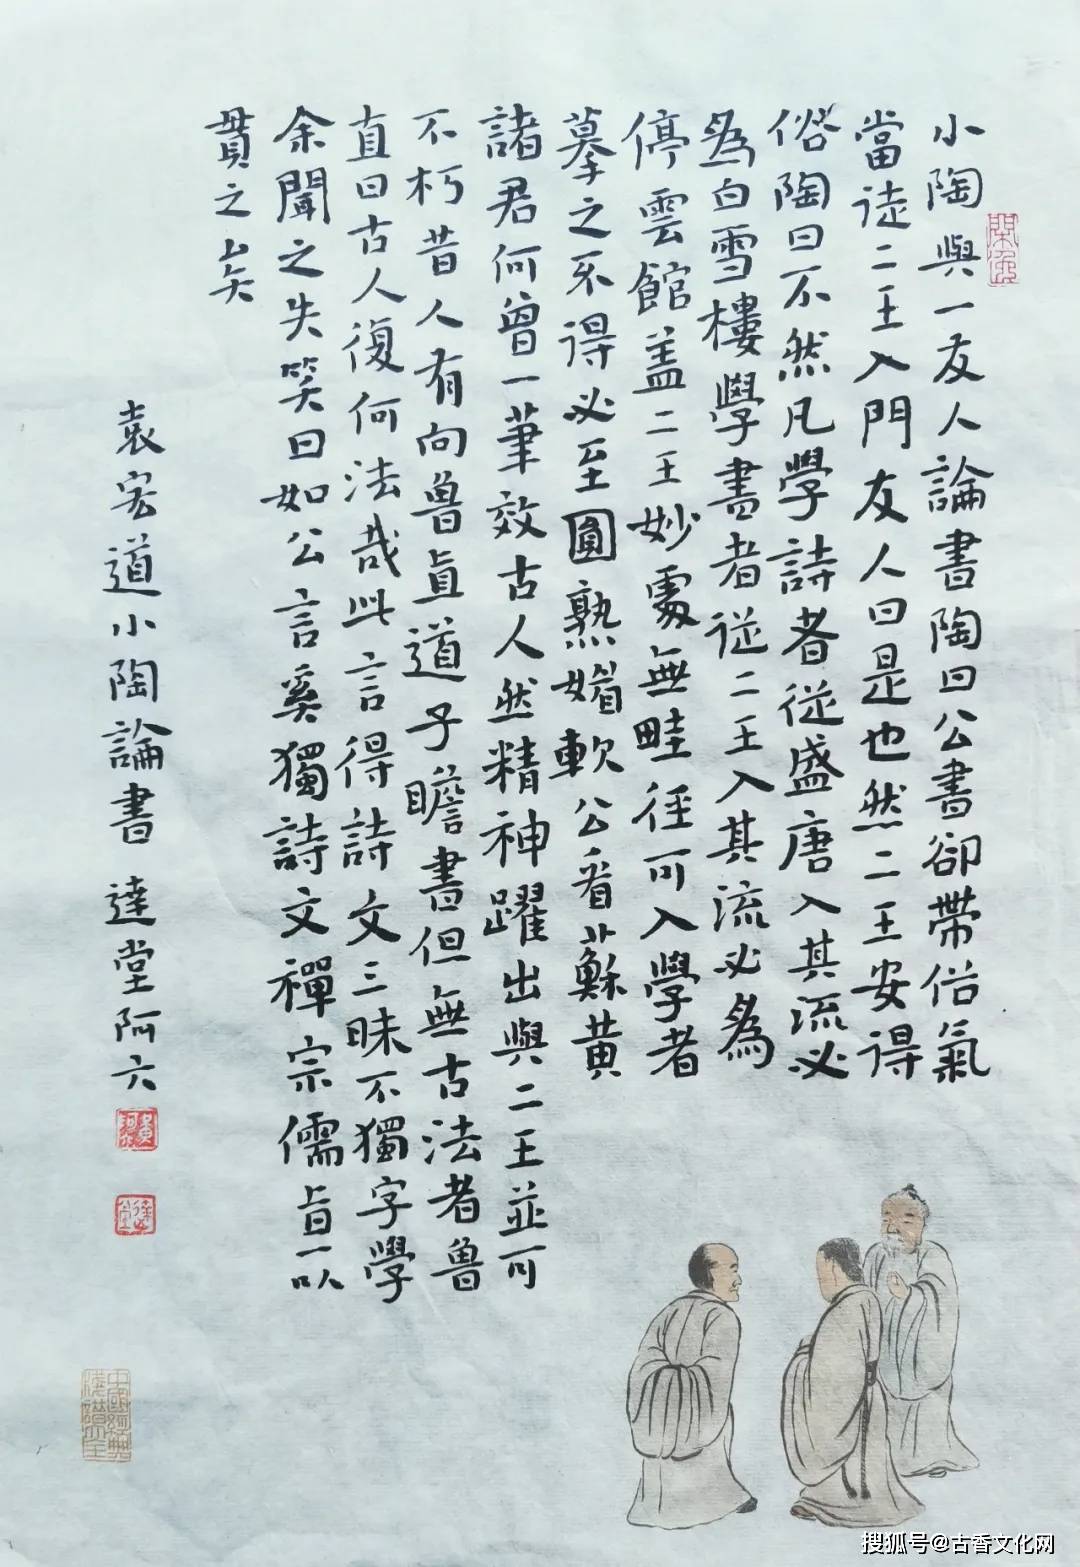 小陶與一友人論書陶曰公書卻帶俗氣
當徒二王入門友人曰是也然二王安得
俗陶曰不然凡學詩者從盛唐入其流必
為白雪樓學書者從二王入其流必為
停雲館盖二王妙處無畦徑可入學者
摹之不得必至圓熟媚軟公看蘇黄
諸君何曾一筆效古人然精神躍出與二王並可
不朽昔人有向魯直道子瞻書但無古法者魯
直曰古人復何法哉此言得詩文三昧不獨字學
余聞之失笑曰如公言奚獨詩文禪宗儒旨一以
貫之矣
袁宏道小陶論書 達堂阿六
搜狐号@古香文化网